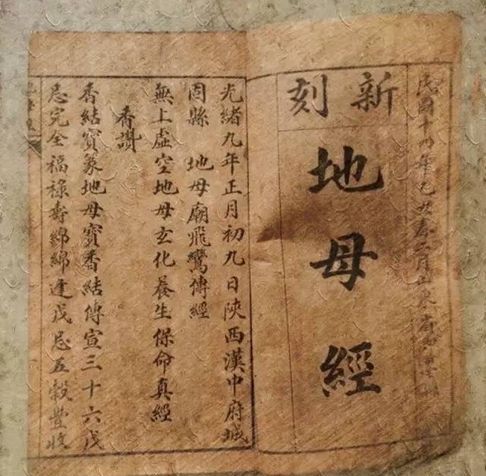 民國十四年乙丑春三月
新刻
地母經
光緒九年正月初九日陝西漢中府城
固縣 地母廟飛鸞傳經
無上虛空地母玄化養生保命真經
香讚
香結寶篆地母寶香結傳宣三十六戊
忌完全福祿壽綿綿逢戊忌五穀豐收